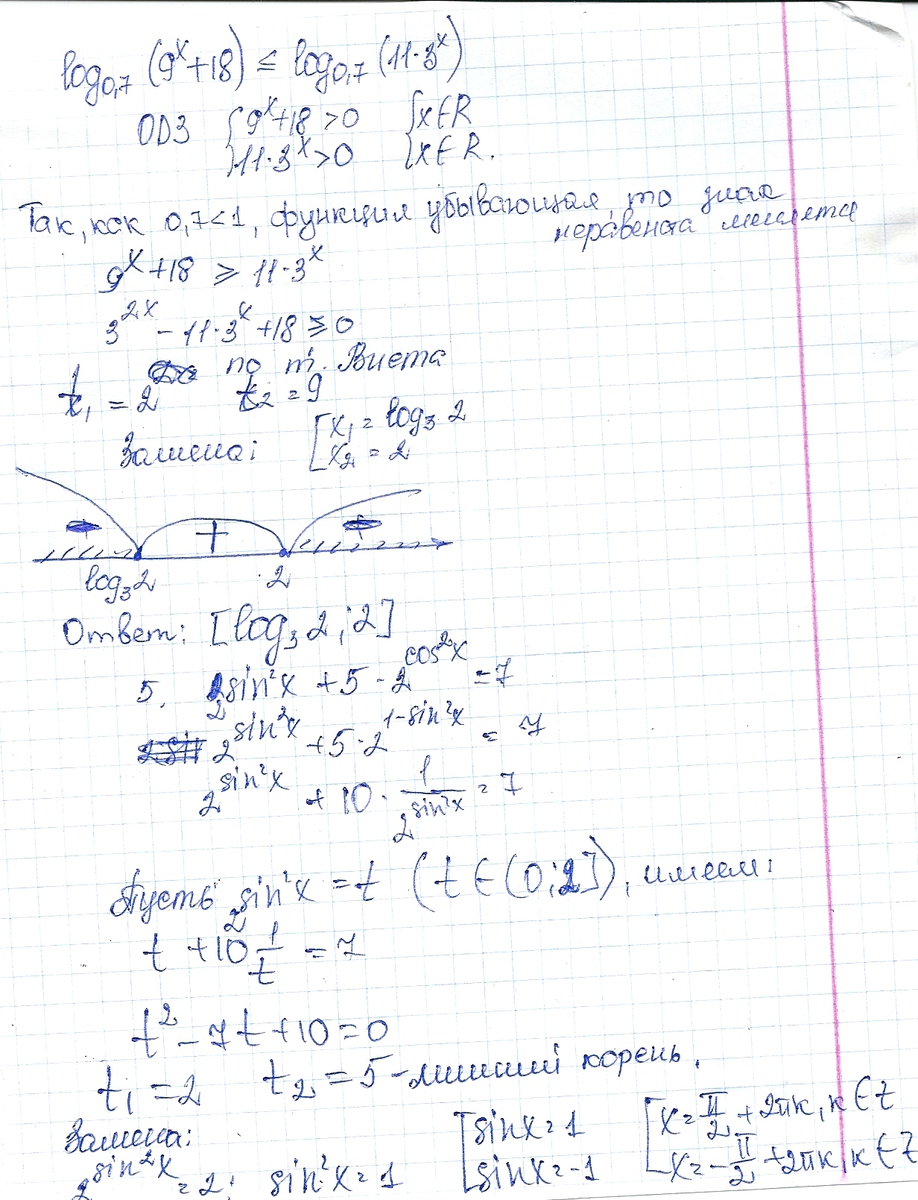 log₀,₇ (9ˣ+18) ≤ log₀,₇ (11·3ˣ)
ОДЗ { 9ˣ+18 >0 { x∈R
11·3ˣ>0 x∈R.
Так, как 0,7<1, функция убывающая, то знак
неравенста меняется
9ˣ+18 ≥ 11·3ˣ
3²ˣ - 11·3ˣ +18 ≥ 0
по т. Виета
t₁ = 2 t₂ = 9
Замена: [ x₁ = log₃ 2
x₂ = 2
+
log₃2 2
Ответ: [log₃2 ; 2]
5. 2^sin²x + 5 · 2^cos²x = 7
2^sin²x + 5·2^1-sin²x = 7
2^sin²x + 10 · 1/2^sin²x = 7
Пусть 2^sin²x = t (t ∈ (0;2]), имеем:
t + 10 1/t = 7
t² - 7t + 10 = 0
t₁ = 2 t₂ = 5 - лишний корень.
Замена: [ sinx = 1 [ x = π/2 + 2πк, к ∈ Z
2^sin²x = 2; sin²x = 1 sinx = -1 x = -π/2 + 2πк, к ∈ Z